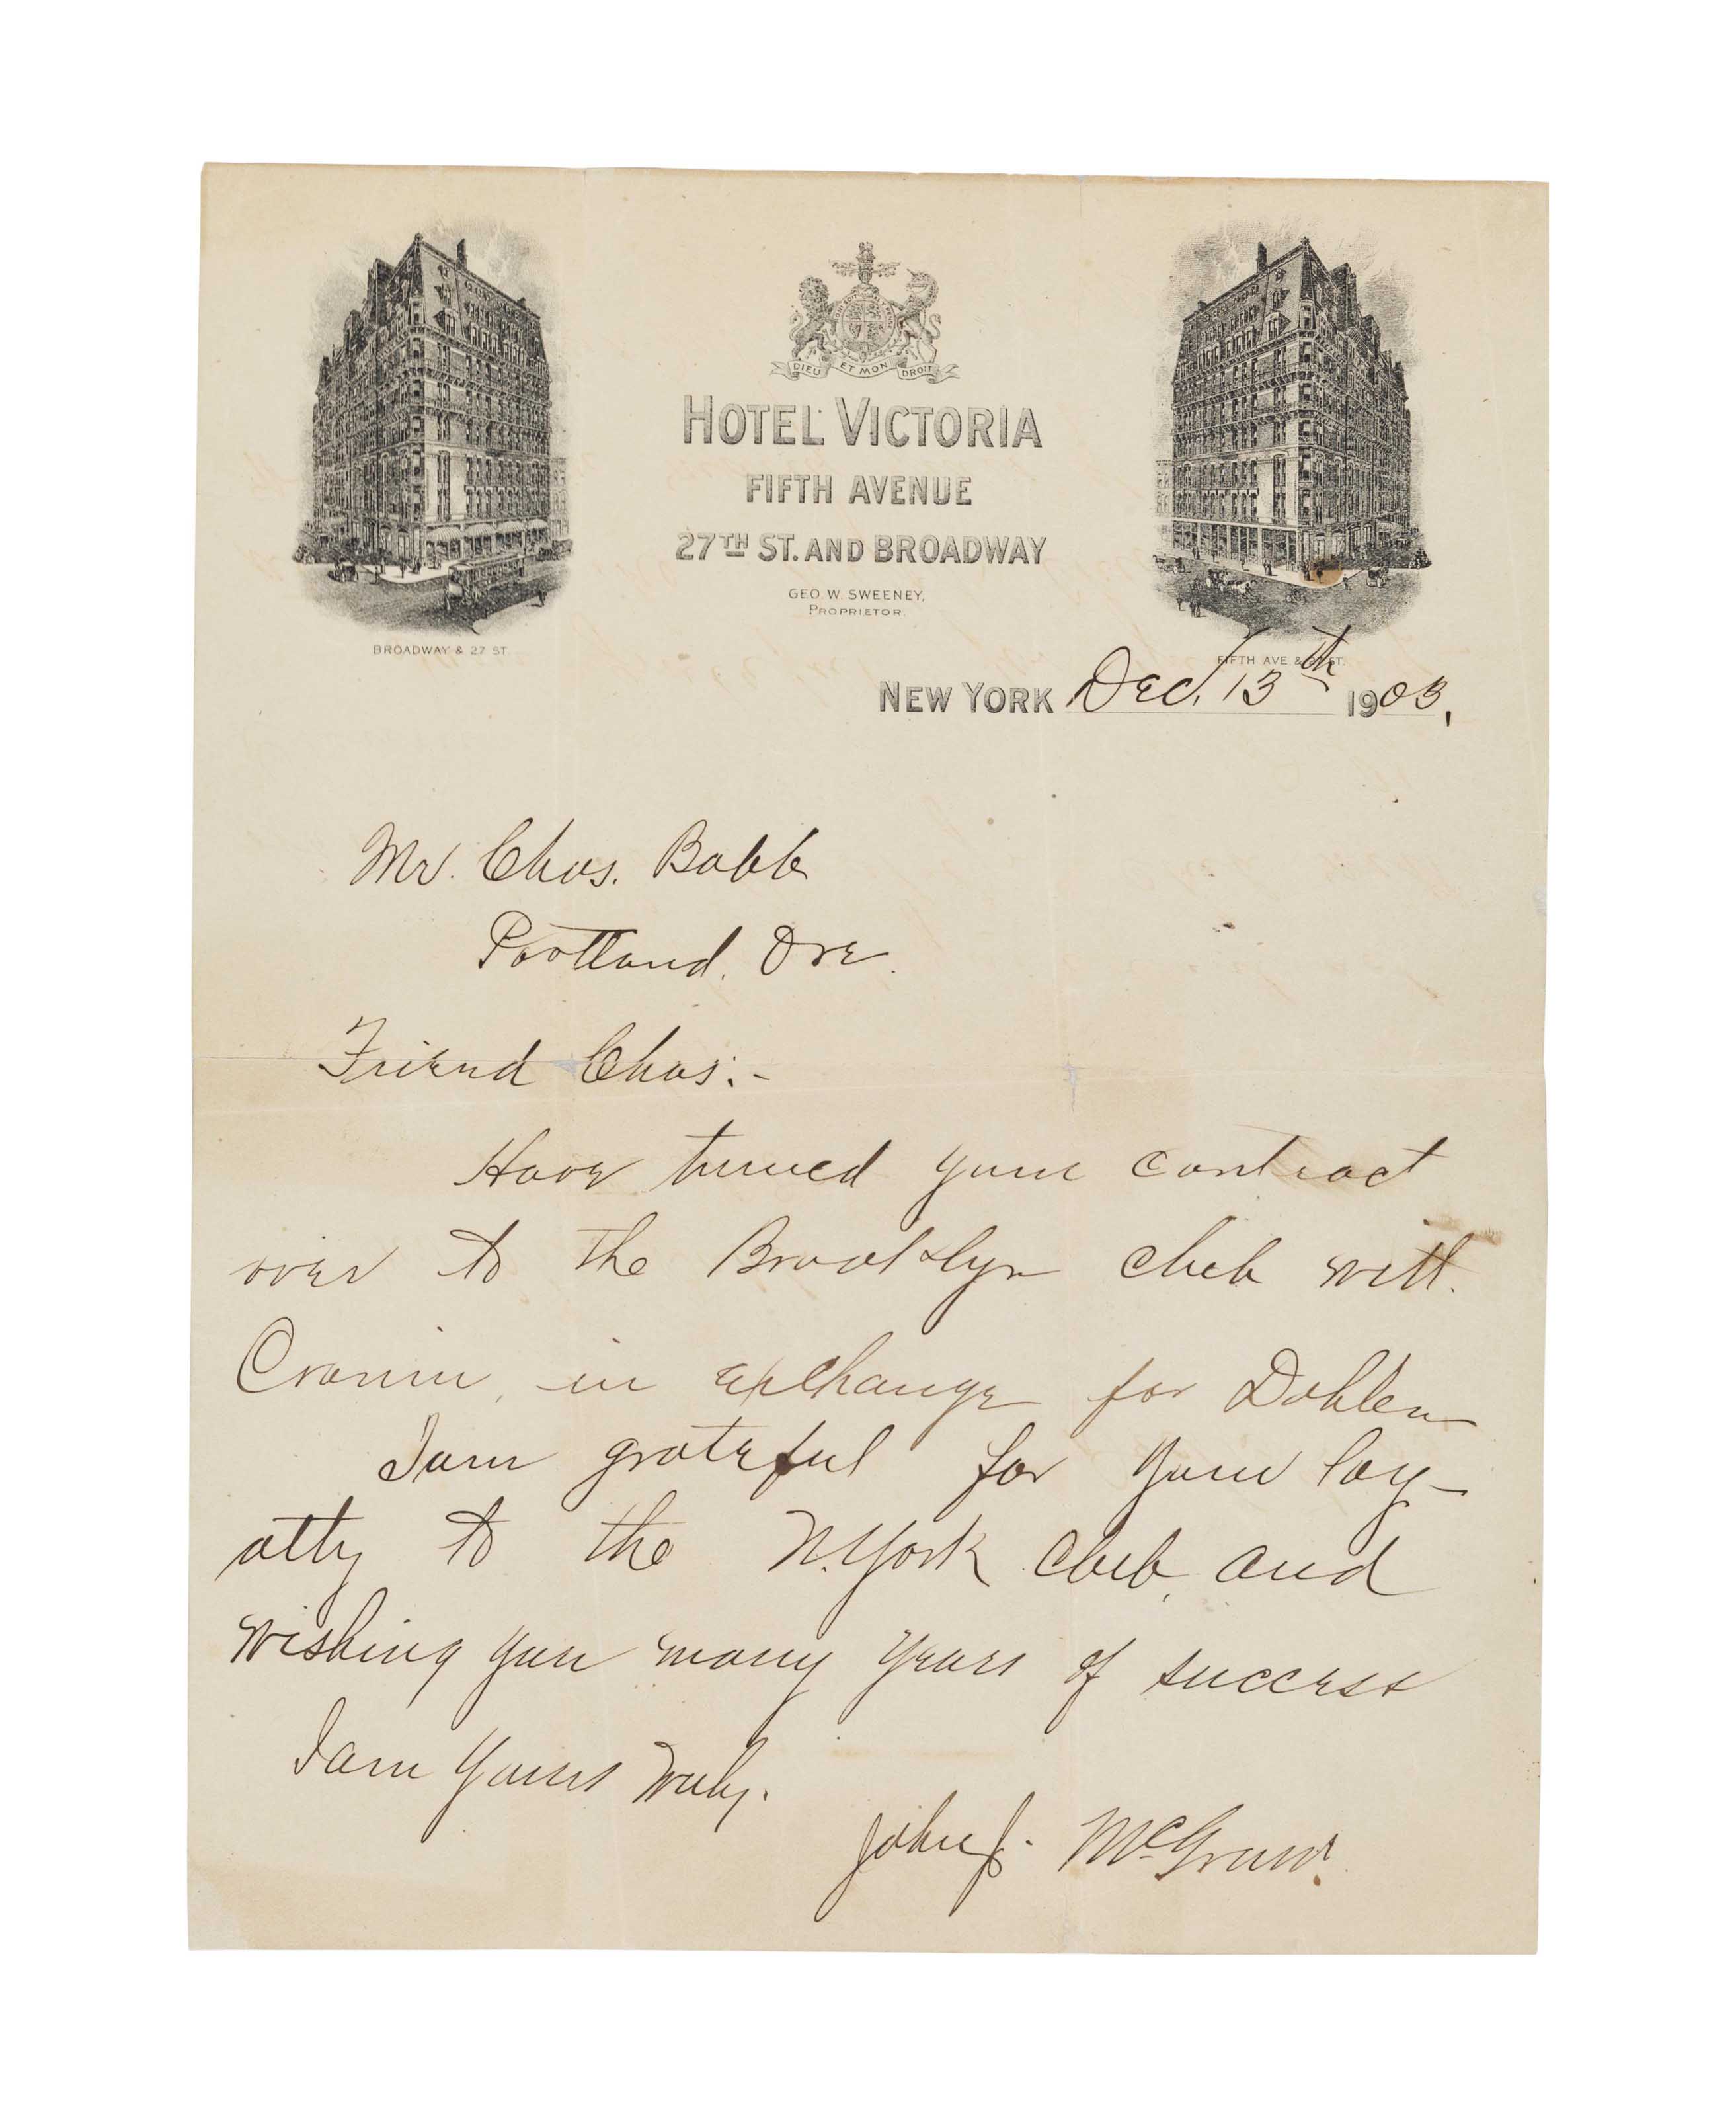 DIEU ET MON DROIT
HOTEL VICTORIA
FIFTH AVENUE
27TH ST. AND BROADWAY
GEO. W. SWEENEY,
PROPRIETOR.
BROADWAY & 27 ST.
FIFTH AVE. & ST.
NEW YORK Dec. 13th 1903.
Mr. Chas. Babb
Portland. Ore.
Friend Chas:-
Have turned your contract
over to the Brooklyn club with
Cronin, in exchange for Dahlen
I am grateful for your loy-
alty to the N. York club, and
wishing you many years of success
I am Yours truly.
John J. McGraw.